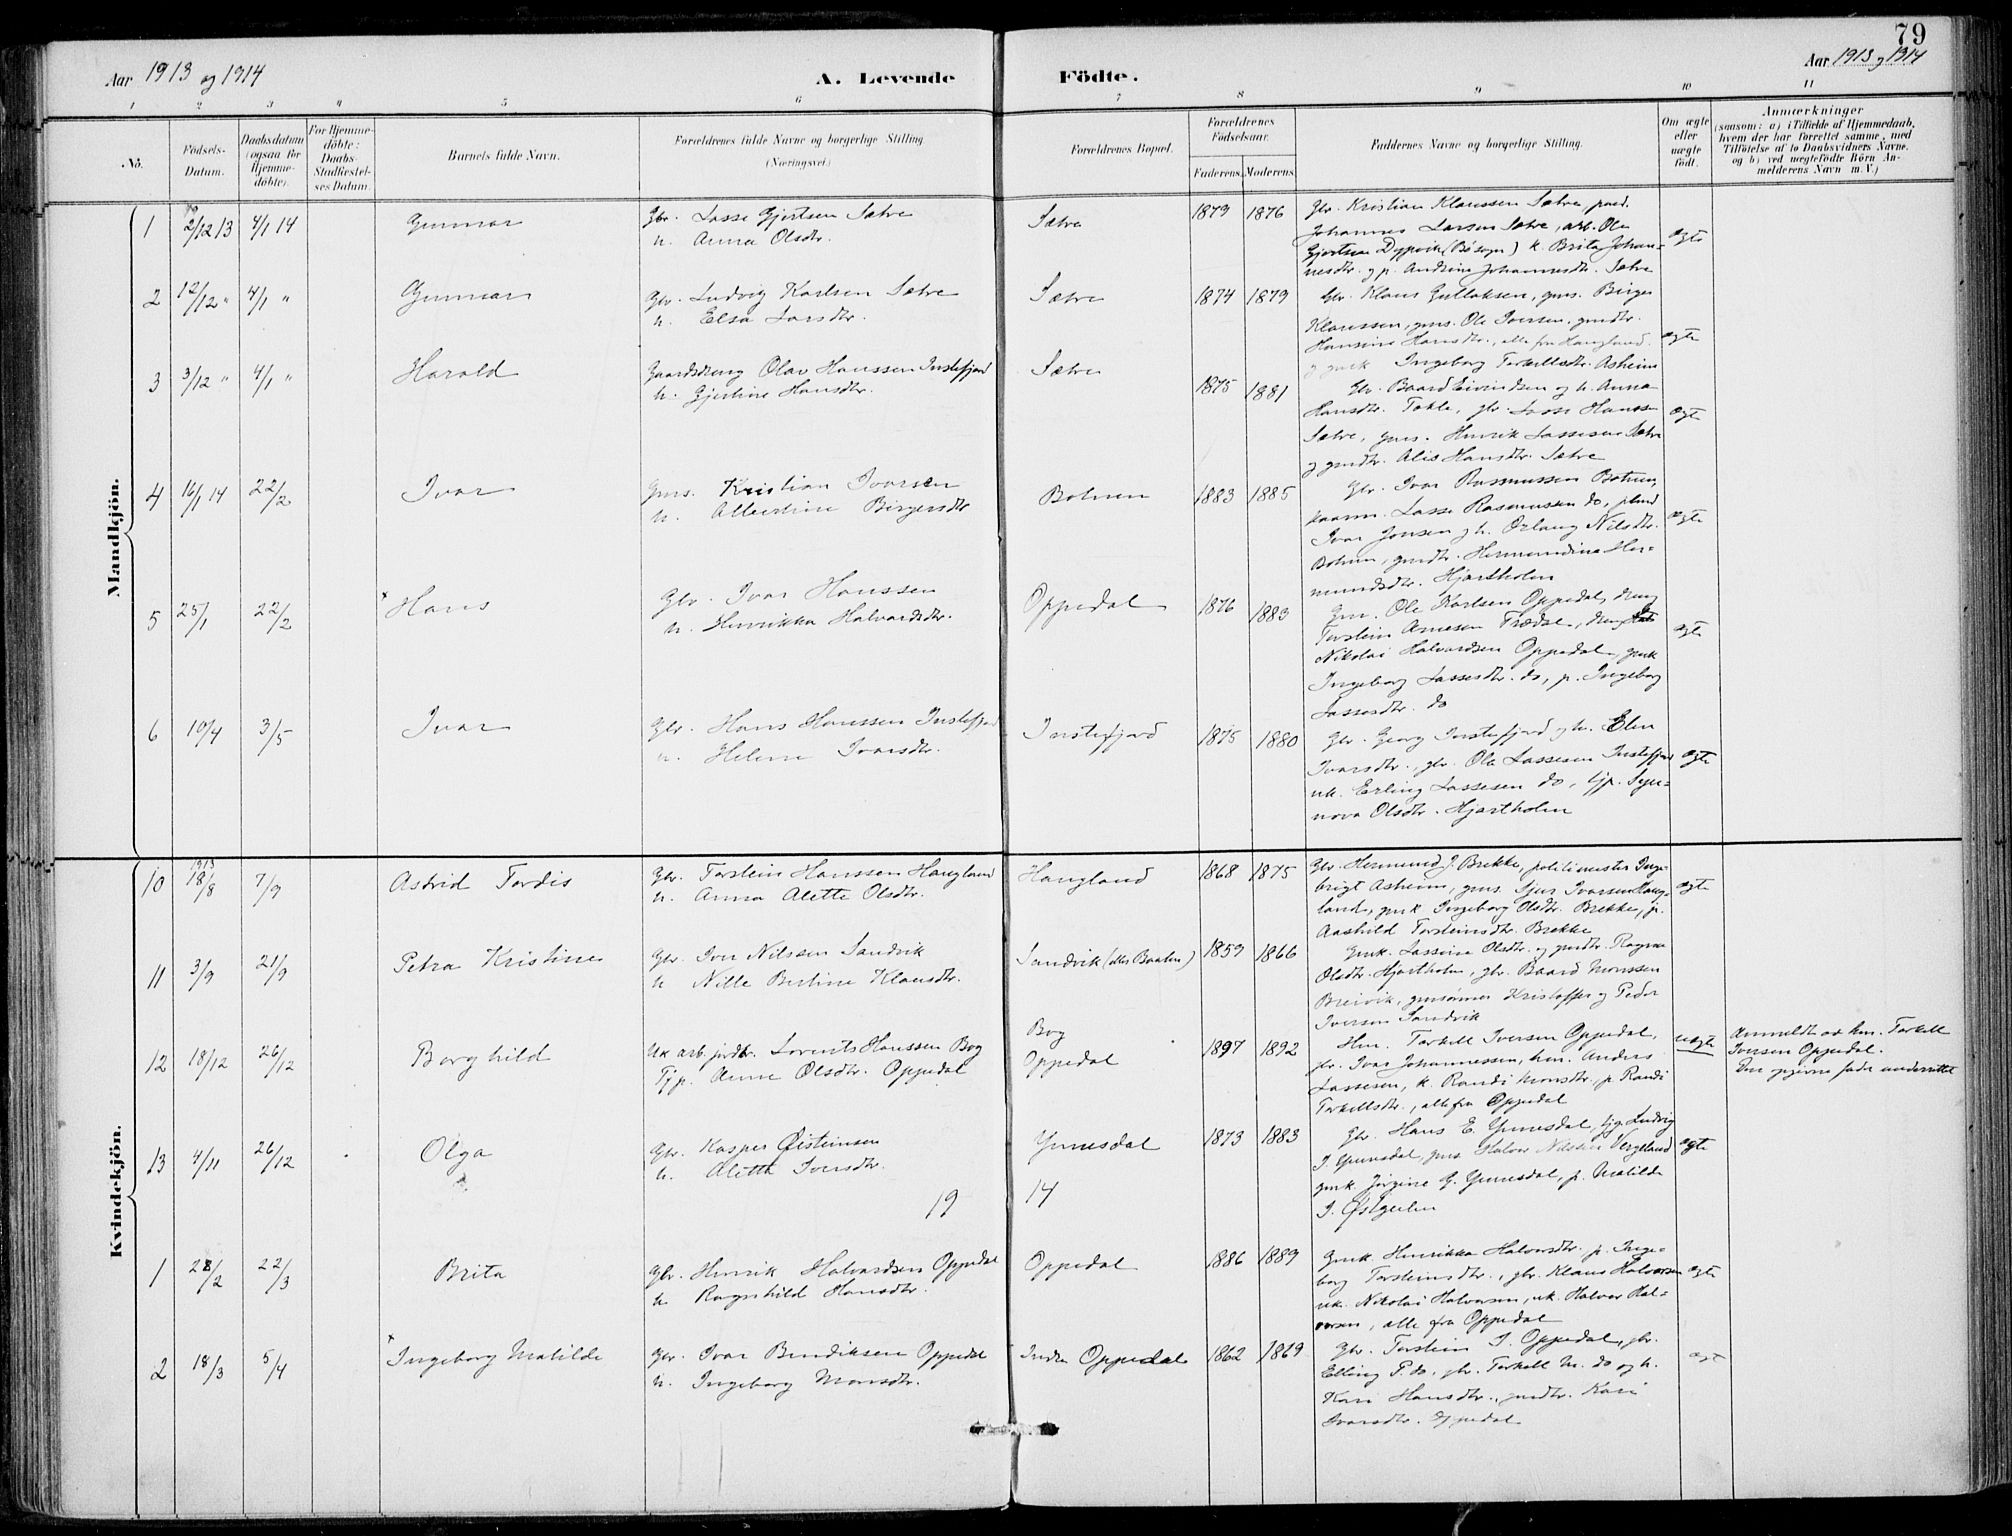 79
Aar 1913 og 1914
A. Levende Födte.
Aar 1913 og 1914
1 2 3 4 5 6 7 8 9 10 11
No.
Födsels-Datum.
Daabsdatum (ogsaa for Hjemmedöbte).
For Hjemmedöbte: Daabs-Stadfæstelses Datum.
Barnets fulde Navn.
Forældrenes fulde Navne og borgerlige Stilling
(Næringsvei.)
Forældrenes Bopæl.
Forældrenes Födselsaar.
Faderens. Moderens.
Faddernes Navne og borgerlige Stilling.
Om ægte eller uægte födt.
Anmærkninger
(saasom: a) i Tilfælde af Hjemmedaab, hvem der har forrettet samme, med Tilföielse af to Daabsvidners Navne. og b) ved uægtefödte Börn Anmelderens Navn m. V.)
Mandkjön.
1 2/12 13 4/1 14 Gunnar
Gbr. Lasse Gjertsen Sætre
h. Anna Olsdtr.
Sætre 1879 1876
Gbr. Kristian Klaussen Sætre,
Johannes Larsen Sætre, arb. Ole
Gjertsen Dyppvik (Bö sogn) k. Brita Johan-
nesdtr. og p. Andrine Johannesdtr. Sætre
ægte
2 12/12 " 4/1 " Gunnar
Gbr. Ludvig Karlsen Sætre
h. Elsa Larsdtr.
Sætre 1874 1879
Gbr. Klaus Gullaksen, gms. Birger
Klaussen, gms. Ole Iversen, gmdtr.
Hansine Hansdtr., alle fra Haugland
og gmk Ingeborg Torkellsdtr. Asheim
ægte
3 3/12 " 4/1 " Harald
Gaardsdreng Olav Hanssen Instefjord
h. Gjertine Hansdtr.
Sætre 1875 1881
Gbr. Baard Eivindsen og h. Anna
Hansdtr. Takle, gbr. Lasse Hanssen
Sætre, gms. Henrik Lassesen Sætre
og gmdtr. Alis Hansdtr. Sætre
ægte
4 16/1 14 22/2 Ivar
Gms. Kristian Ivarsen
h. Albertine Birgersdtr
Botnen 1883 1885
Gbr. Ivar Rasmussen Botnen
Lasse Rasmussen do,
Ivar Jonsen og h. Nilsdtr.
Botnen, gmdtr. Hermundine Her-
mundsdtr. Hjartholm
ægte
5 25/1 22/2 × Hans
Gbr. Ivar Hanssen
h. Henrikka Halvardsdtr.
Oppedal 1876 1883
Gm. Ole Karlsen Oppedal,
Torstein Arnesen Trædal,
Nikolai Halvardsen Oppedal, gmk
Ingeborg Lassesdtr. do, p. Ingeborg
Lassesdtr. do
ægte
6 10/4 3/5 Ivar
Gbr. Hans Hanssen Instefjord
h. Helene Ivarsdtr.
Instefjord 1875 1880
Gbr. Georg Instefjord og h. Elen
Ivarsdtr., gbr. Ole Lassesen Instefjord
uk. Erling Lassesen do, tjp. Syn-
nova Olsdtr. Hjartholm
ægte
Kvindekjön.
10 1913 18/8 7/9 Astrid Tordis
Gbr. Torstein Hanssen Haugland
h. Anna Alette Olsdtr.
Haugland 1868 1875
Gbr. Hermund J. Brekke, politimester Inge-
brigt Asheim, gms. Sjur Ivarsen Haug-
land, gmk Ingeborg Olsdtr. Brekke, p.
Aashild Torsteinsdtr. Brekke
ægte
11 3/9 21/9 Petra Kristine
Gbr. Iver Nilsen Sandvik
h. Nille Bertine Klausdtr.
Sandvik 1859 1866
Gmk. Lassine Olsdtr. og gmdtr. Ragna
Olsdtr. Hjartholm, gbr. Baard Monssen
Breivik, gmsønner Kristoffer og Peder
Iversen Sandvik
12 18/12 26/12 Borghild
Uk arb. jordbr. Lorents Hanssen Bog
Tjp. Anne Olsdtr. Oppedal
Bog
Oppedal
1897 1892
Hm. Torkell Iversen Oppedal,
gbr. Ivar Johannessen, hm. Anders
Lassesen, k. Randi Monsdtr., p Randi
Torkellsdtr., alle fra Oppedal
uægte
Anmeldt av hm. Torkell
Iversen Oppedal.
Den opgivne fader underrettet
13 4/11 26/12 Olga
Gbr. Kasper Øisteinsen
h. Oletta Iversdtr.
Ynnesdal 1873 1883
Gbr. Hans E. Ynnesdal, Ludvig
I. Ynnesdal, gms Halvor Nilssen Vergeland
gmk. Jørgine G. Ynnesdal, p. Matilde
I. Østgulen
ægte
19 14
1 28/2 22/3 Brita
Gbr. Henrik Halvardsen Oppedal
h. Ragnhild Hansdtr.
Oppedal 1886 1889
Gmk. Henrikka Halvorsdtr. p. Inge-
borg Torsteinsdtr., gbr. Klaus Halvorsen
uk. Nikolai Halvorsen, uk. Halvor Hal-
vorsen, alle fra Oppedal
ægte
2 18/3 5/4 × Ingeborg Matilde
Gbr. Ivar Bendiksen Oppedal
h. Ingeborg Monsdtr.
Indre Oppedal 1862 1869
Gbr. Torstein I. Oppedal, gbr.
Elling P. do, gbr. Torkell M. do og h.
Kari Hansdtr., gmdtr. Kari
Ivarsdtr. Oppedal
ægt